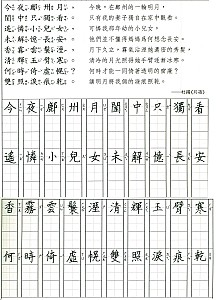 今夜鄜州月，
閨中只獨看。
遙憐小兒女，
未解憶長安。
香霧雲鬟溼，
清輝玉臂寒。
何時倚虛幌，
雙照淚痕乾。
今夜，在鄜州的一輪明月，
只有我的妻子獨自在家中觀看。
可憐我那年幼的小兒女，
他們並不懂得媽媽為何想念長安。
月下久立，霧氣沾溼她濃密的秀髮，
清冷的月光照得她手臂透着寒意。
何時才能一同倚著透明的窗簾？
讓明月將我倆的淚痕照乾。
——杜甫《月夜》
今夜鄜州月閨中只獨看
遙憐小兒女未解憶長安
香霧雲鬟溼清輝玉臂寒
何時倚虛幌雙照淚痕乾